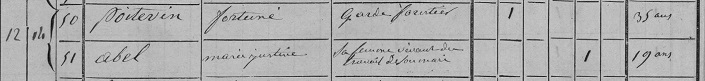 50 Poitevin fortuné Garde forestier 1 35 ans
12 14
51 abel marie justine Sa femme vivant du travail de son mari 1 19 ans